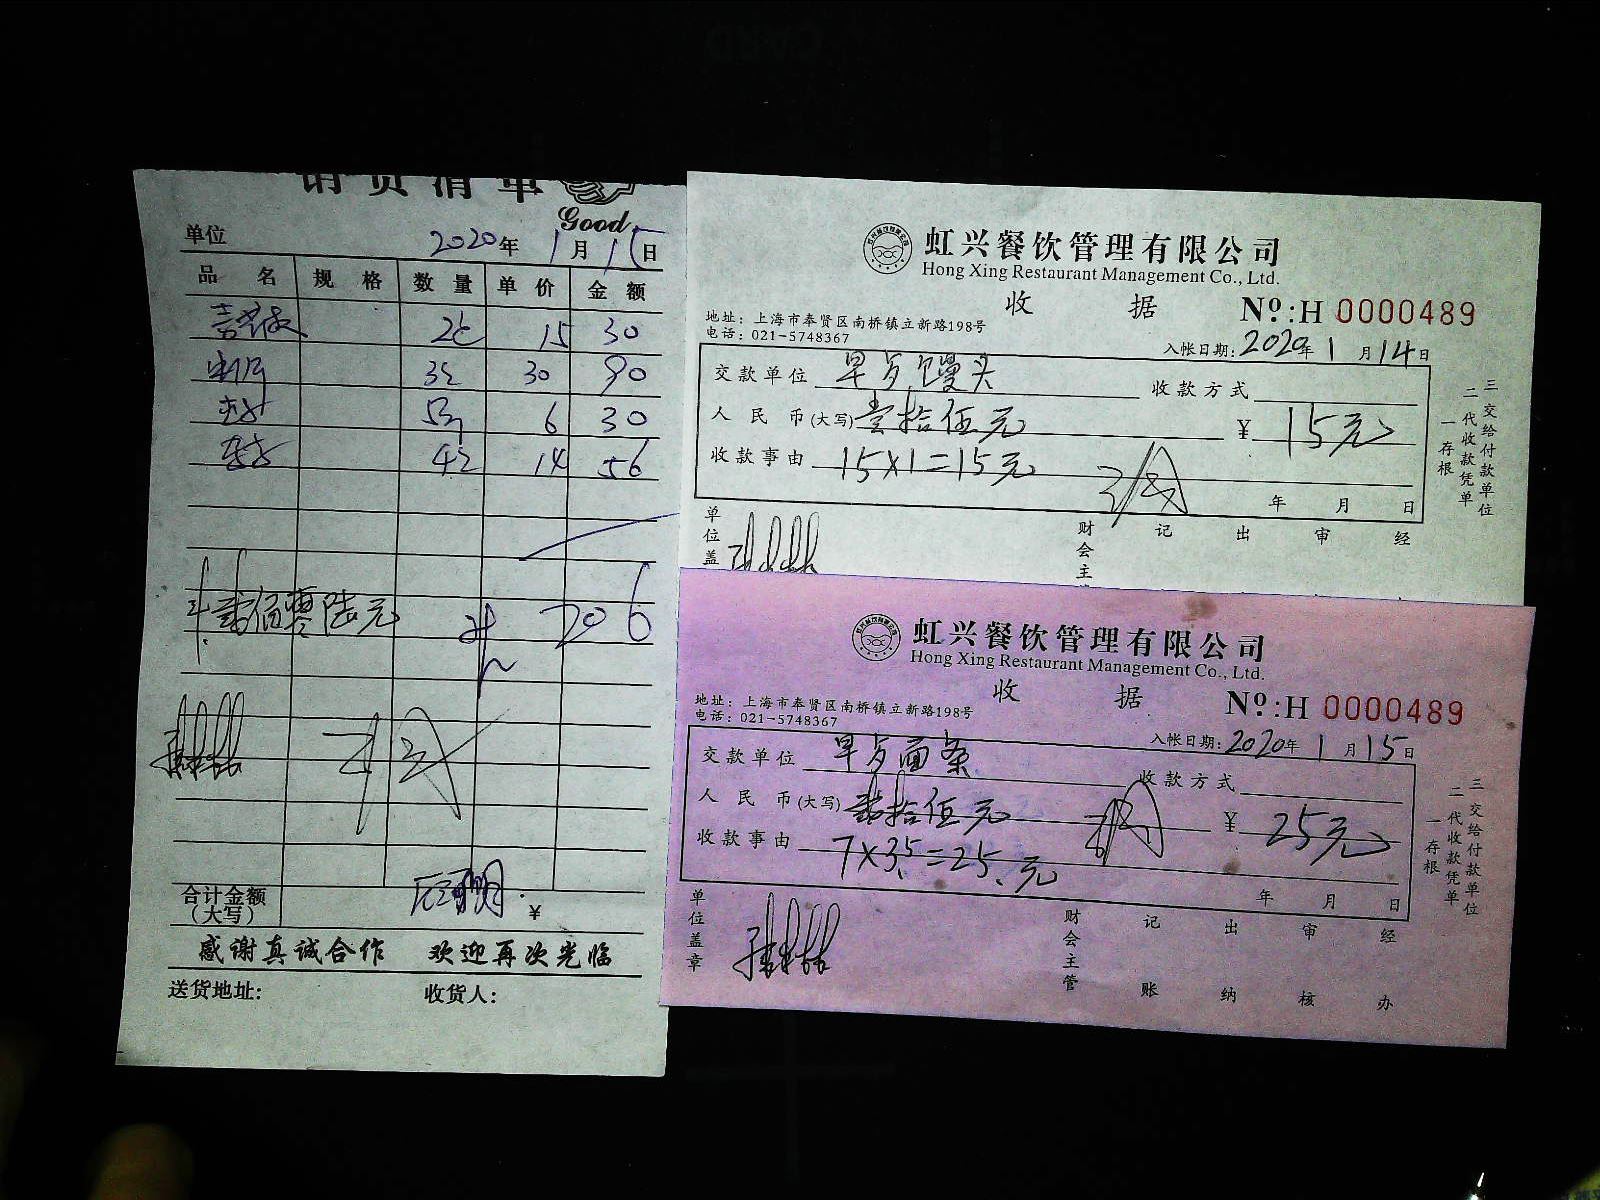 销货清单
Good
单位 2020年1月15日
品名 规格 数量 单价 金额
15 30
30 90
6 30
14 56
贰佰零陆元 206
合计金额(大写) ¥
感谢真诚合作 欢迎再次光临
送货地址: 收货人:
虹兴餐饮管理有限公司
Hong Xing Restaurant Management Co., Ltd.
收据 Nº:H 0000489
地址:上海市奉贤区南桥镇立新路198号
电话:021-5748367
入帐日期:2020年1月14日
交款单位 早点馒头 收款方式
人民币(大写) 壹拾伍元 ¥ 15元
收款事由 15×1=15元
年 月 日
三交给付款单位
二代收款凭单
一存根
单位盖 财会主 记 出 审 经
虹兴餐饮管理有限公司
Hong Xing Restaurant Management Co., Ltd.
收据 Nº:H 0000489
地址:上海市奉贤区南桥镇立新路198号
电话:021-5748367
入帐日期:2020年1月15日
交款单位 早点面条 收款方式
人民币(大写) 贰拾伍元 ¥ 25元
收款事由 7×3.5=25.元
年 月 日
三交给付款单位
二代收款凭单
一存根
单位盖章 财会主管 记账 出纳 审核 经办